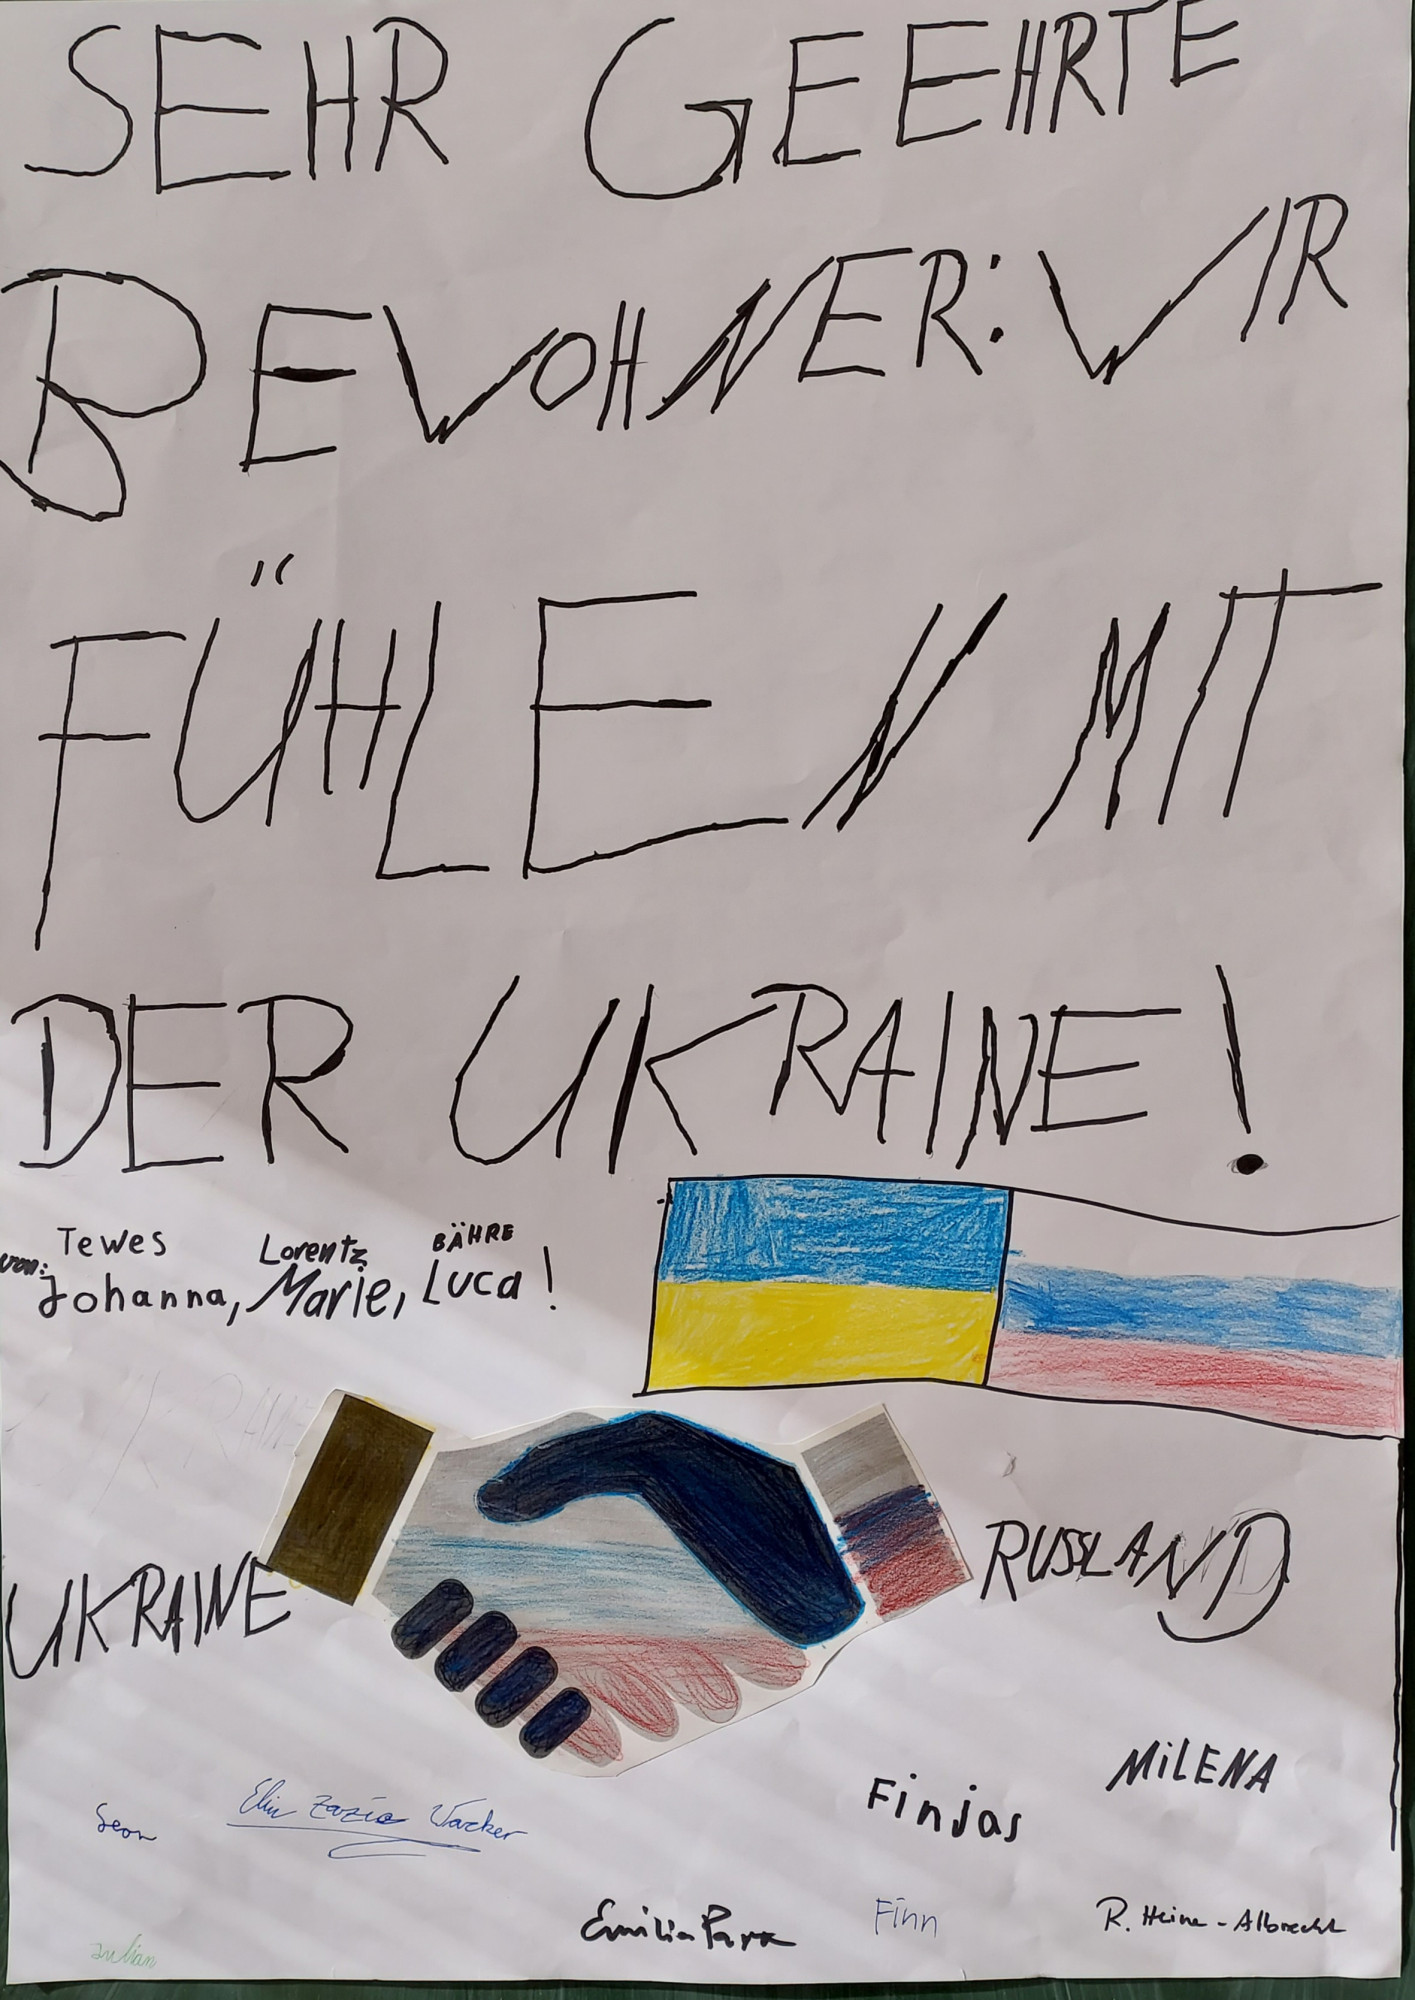 SEHR GEEHRTE
BEWOHNER: WIR
FÜHLEN MIT
DER UKRAINE!
Tewes Lorentz BÄHRE
von: Johanna, Marie, Luca!
UKRAINE
RUSSLAND
MiLENA
Finjas
Zazie Wacker
Emilia
Finn
R. Heine-Albrecht
Julian